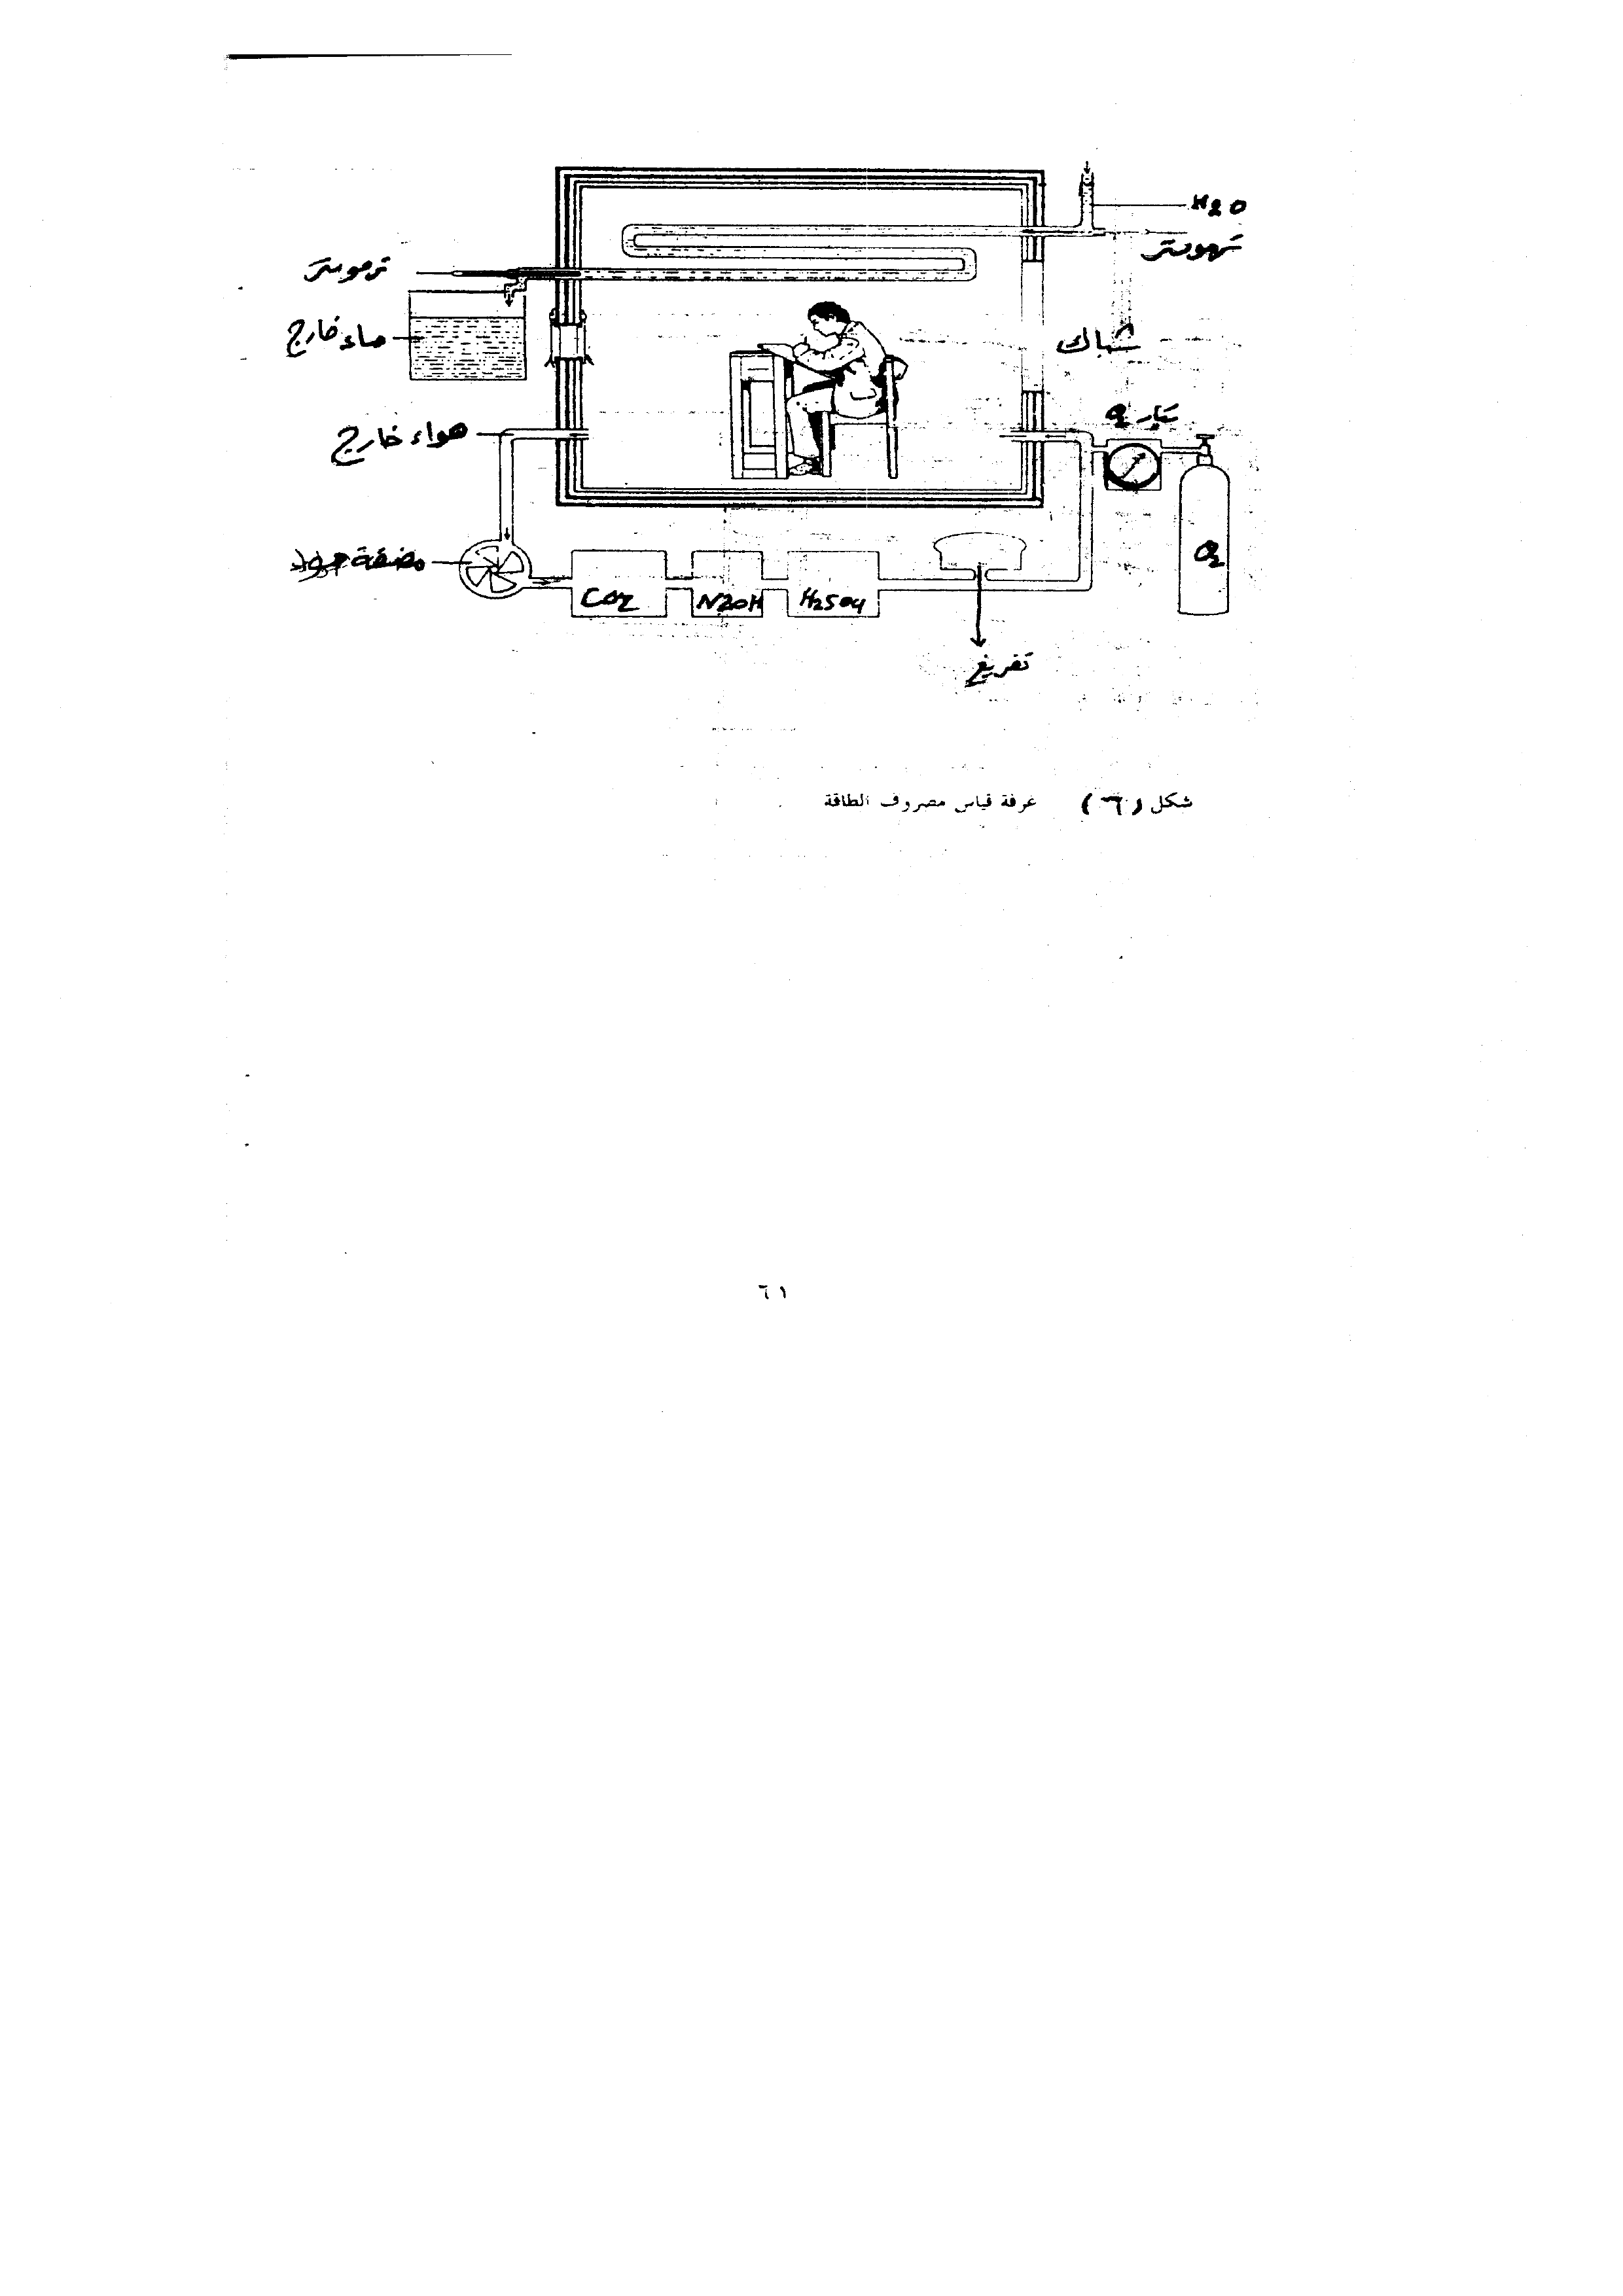 H2O
ترمومتر
ترمومتر
ماء خارج
شباك
تيار O2
هواء خارج
O2
مضخة هواء
CO2
NaOH
H2SO4
تفريغ
شكل (٦) غرفة قياس مصروف الطاقة
٦١